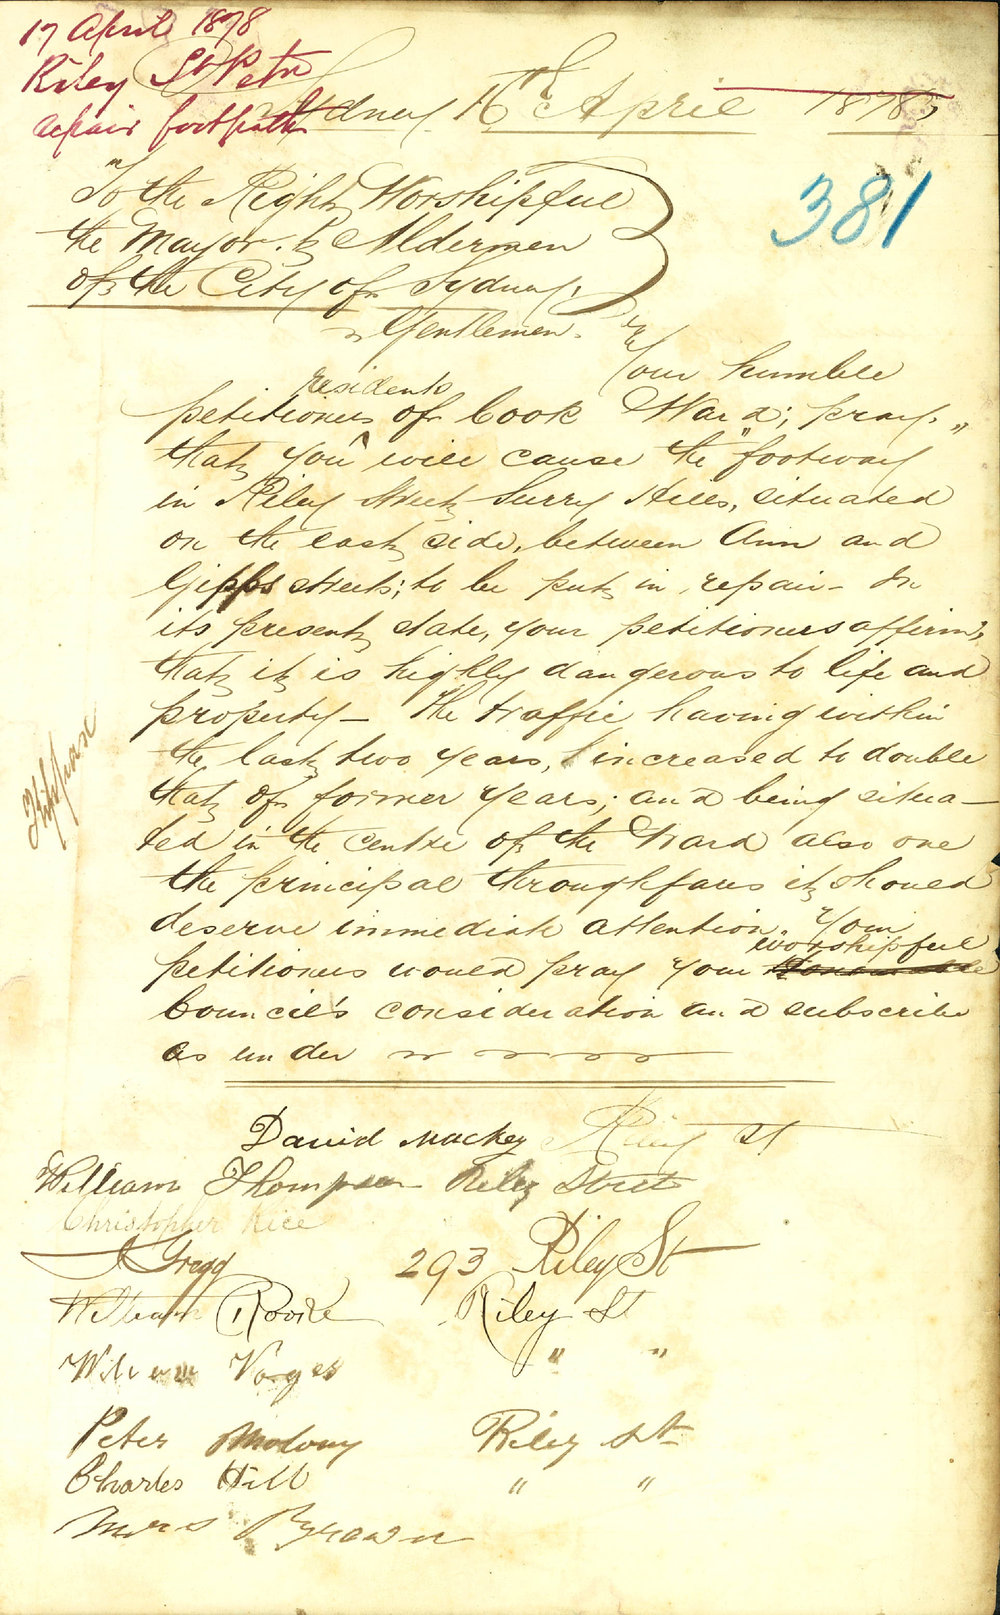 17 April 1878
Riley St Petn
repair footpath
Sydney 16th April 1878
381
"To the Right Worshipful
the Mayor & Aldermen
of the City of Sydney,
Gentlemen.
Your humble
residents
petitioners of Cook Ward; pray,"
that you will cause the "footway
in Riley Street Surry Hills, situated
on the east side, between Ann and
Gipps streets; to be put in repair - In
its present state, your petitioners affirm,
that it is highly dangerous to life and
property - the traffic having within
the last two years, increased to double
that of former years; and being situa-
ted in the centre of the Ward also one
the principal throughfares it should
deserve immediate attention. Your
worshipful
petitioners would pray your Honourable
Council's consideration and subscribe
as under
David Mackey Riley St
William Thompson Riley Street
Christopher Rice
J Gregg 293 Riley St
William Riley St
William Varges " "
Peter Molony Riley St
Charles Hill " "
Mrs Brown